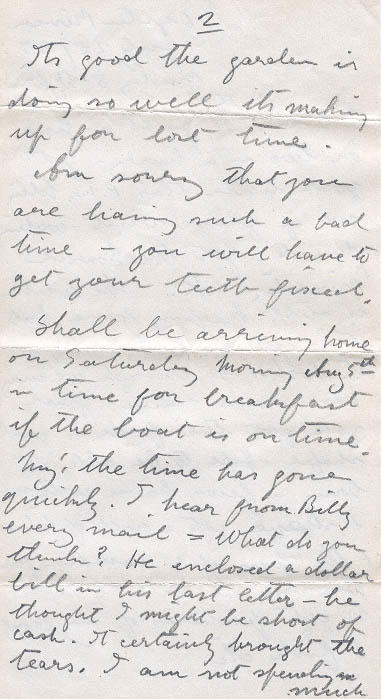 2
Its good the garden is
doing so well its making
up for lost time.
Am sorry that you
are having such a bad
time - you will have to
get your teeth fixed.
Shall be arriving home
on Saturday morning Aug 5th
in time for breakfast
if the boat is on time.
My! the time has gone
quickly. I hear from Billy
every mail = What do you
think? He enclosed a dollar
bill in his last letter - he
thought I might be short of
cash. It certainly brought the
tears. I am not spending
much